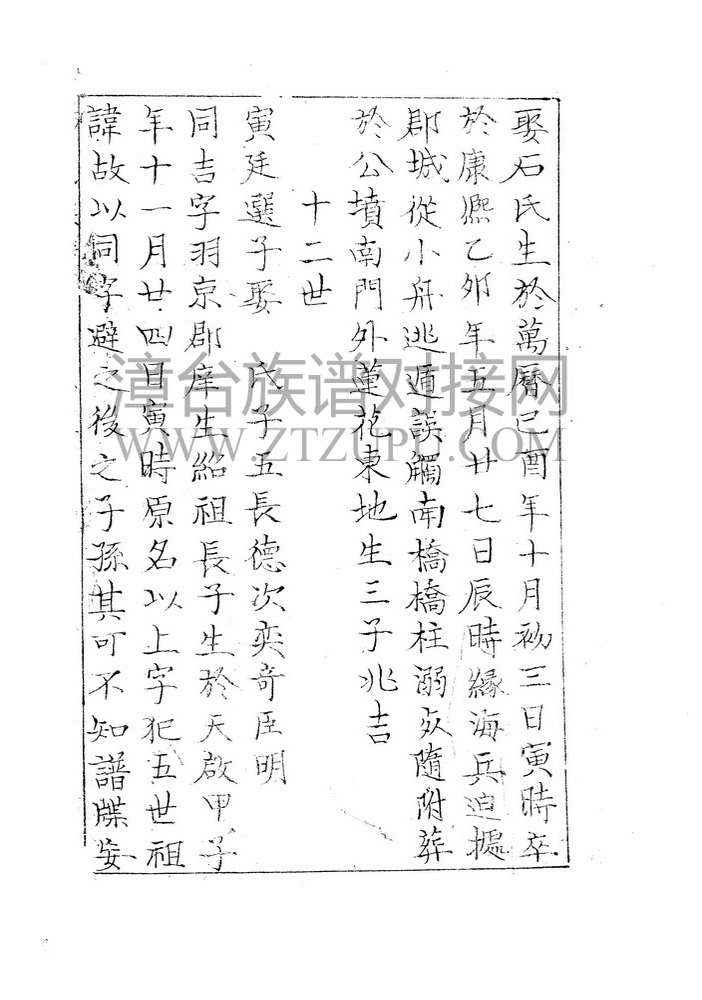 娶石氏生於萬曆己酉年十月初三日寅時卒
於康熙乙夘年五月廿七日辰時縁海兵迫擄
郡城從小舟逃遁誤觸南橋橋柱溺歿隨附葬
於公墳南門外蓮花東地生三子兆吉
十二世
寅廷選子娶 氏子五長德次奕奇臣明
同吉字羽京郡庠生紹祖長子生於天啟甲子
年十一月廿四日寅時原名以上字犯五世祖
諱故以同字避之後之子孫其可不知譜牒安
漳台族谱对接网
WWW.ZTZUPU.COM